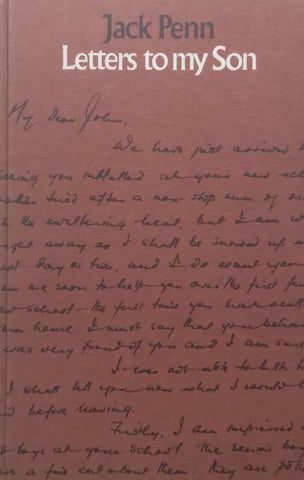 Jack Penn
Letters to my Son
My dear John,
We have just arrived
seeing you installed at your new
tired after a non-stop run of
in the sweltering heat. But I am
right away as I shall be
day or two, and I do want you
soon to help you over the first few
new school — the first time you have
own home. I must say that your
was very proud of you and I am sure
I was not able to talk to
I shall tell you now what I would
before leaving.
Firstly, I am impressed
boys at your school. The senior boys
a fair about them: they are